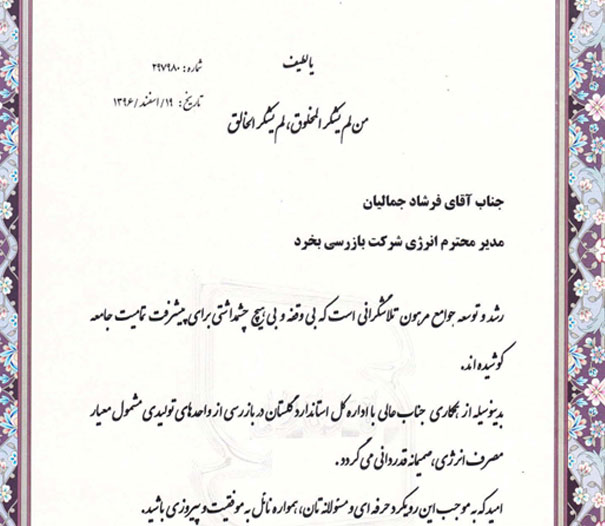 یا لطیف
شماره: ۲۹۷۹۸۰
تاریخ: ۱۹/اسفند/۱۳۹۶
من لم یشکر المخلوق، لم یشکر الخالق
جناب آقای فرشاد جمالیان
مدیر محترم انرژی شرکت بازرسی بخرد
رشد و توسعه جوامع مرهون تلاشگرانی است که بی وقفه و بی هیچ چشمداشتی برای پیشرفت تمامیت جامعه
کوشیده اند.
بدینوسیله از همکاری جناب عالی با اداره کل استاندارد گلستان در بازرسی از واحدهای تولیدی مشمول معیار
مصرف انرژی، صمیمانه قدردانی می گردد.
امید که به موجب این رویکرد حرفه ای و مسئولانه تان، همواره نائل به موفقیت و پیروزی باشید.